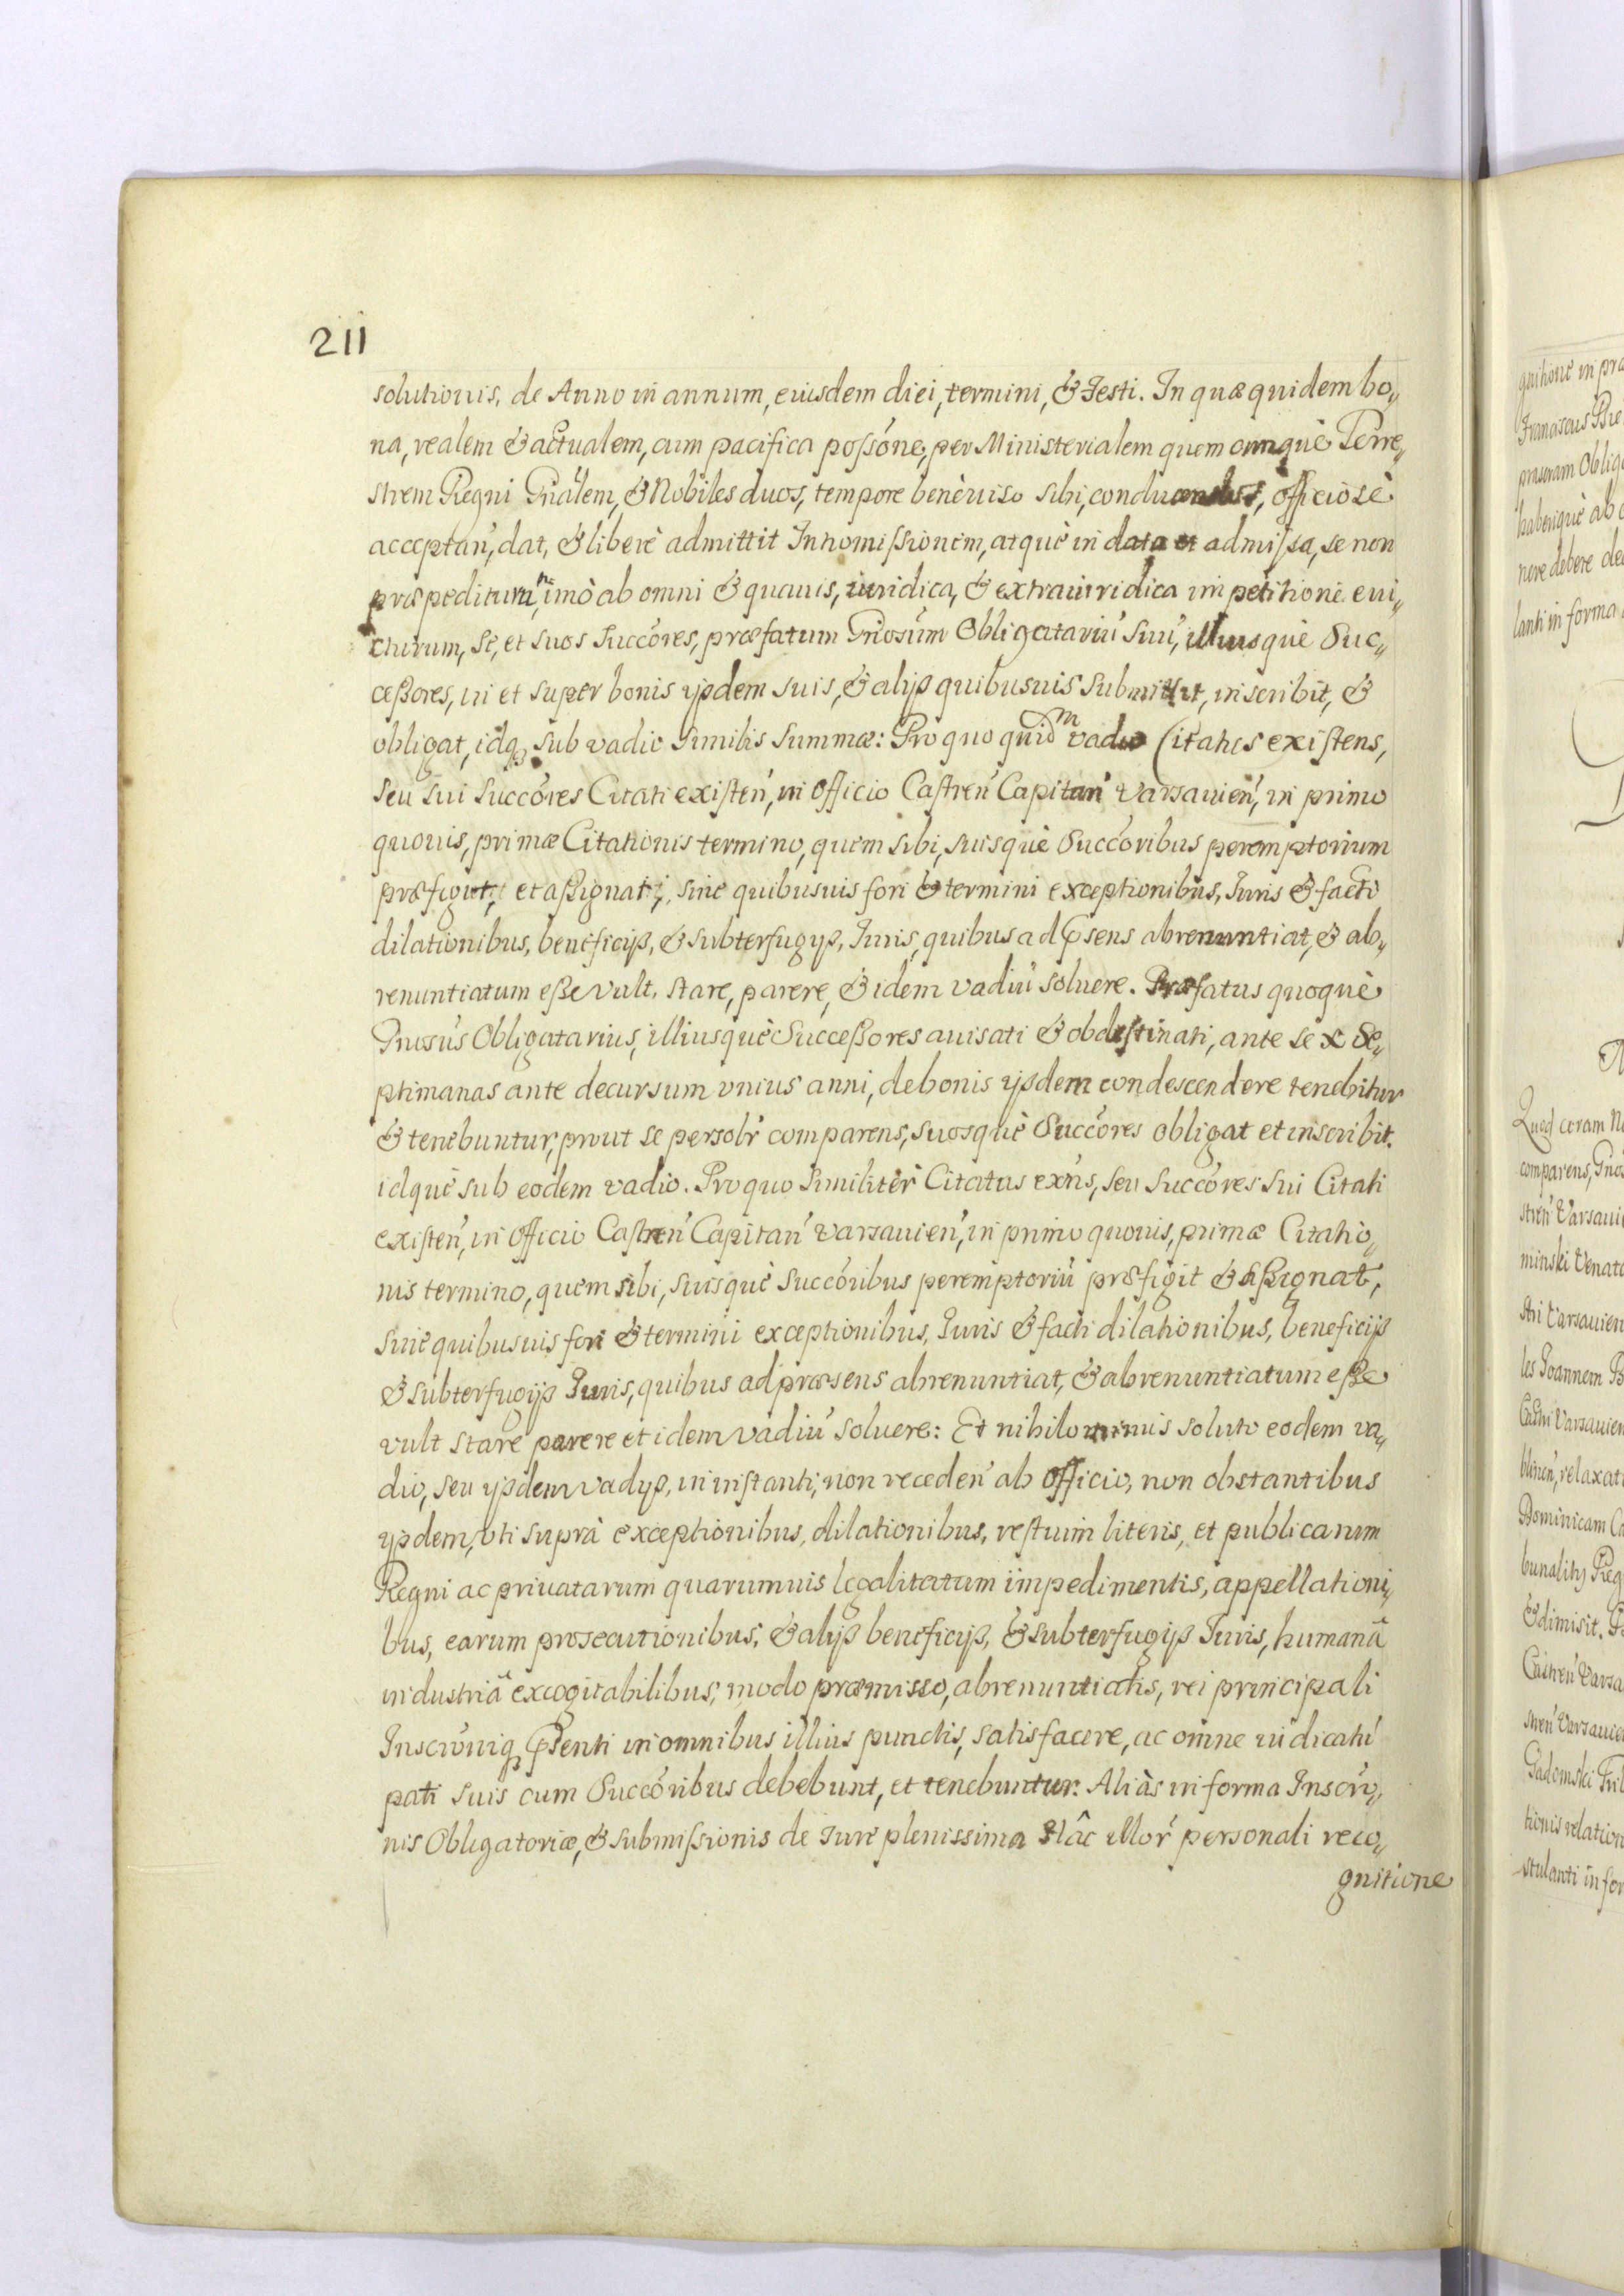 211
solutionis, de Anno in annum, eiusdem diei, termini, & Festi. In quæ quidem bo„
na, realem & actualem, cum pacifica possóne, per Ministerialem quemcunquè Terre„
strem Regni Gnálem, & Nobiles duos, tempore benèuiso sibi, conducendos, officiosè
acceptań, dat, & liberè admittit Intromissionem, atquè in data et admissa, se non
præpediturum, imò ab omni & quauis, iuridica, & extraiuridica impetitione eui„
cturum, se, et suos Succóres, præfatum Gnosúm Obligatariú suú, illiusquè Suc„
cessores, in et super bonis ijsdem suis, & alijs quibusuis submittit, inscribit, &
obligat, idq3 sub vadio similis summæ: Pro quo quidm vadio Citatus existens,
seu sui Succóres Citati existeń, in Officio Castreń Capitań Varsauień, in primo
quouis, primæ Citationis termino, quem sibi, suisquè Succóribus peremptorium
præfigit, et assignat, sine quibusuis fori & termini exceptionibus, Juris & facti
dilationibus, beneficijs, & subterfugijs, Juris, quibus ad psens abrenuntiat, & ab„
renuntiatum esse vult, stare, parere, & idem vadiú soluere. Præfatus quoquè
Gnosús Obligatarius, illiusquè Successores auisati & obdestinati, ante sex Se„
ptimanas ante decursum vnius anni, de bonis ijsdem condescendere tenebitur
& tenebuntur, prout se persolr comparens, suosquè Succóres obligat et inscribit.
idquè sub eodem vadio. Pro quo similitèr Citatus exńs, seu Succóres sui Citati
existeń, in Officio Castreń Capitań Varsauień, in primo quouis, primæ Citatio„
nis termino, quem sibi, suisquè Succóribus peremptoriú præfigit & assignat,
sine quibusuis fori & termini exceptionibus, Juris & facti dilationibus, beneficijs
& subterfugijs Juris, quibus ad præsens abrenuntiat, & abrenuntiatum esse
vult stare parere et idem vadiú soluere: Et nihilominus soluto eodem va„
dio, seu ijsdem vadijs, in instanti, non recedeń ab Officio, non obstantibus
ijsdem, vti suprà exceptionibus, dilationibus, vestrum literis, et publicarum
Regni ac priuatarum quarumuis legalitatum impedimentis, appellationi„
bus, earum prosecutionibus, & alijs beneficijs, & subterfugijs Juris, humanâ
industriâ excogitabilibus, modo præmisso, abrenuntiatis, rei principali
Inscrónique psenti in omnibus illius punctis, satisfacere, ac omne iudicatú
pati suis cum Succóribus debebunt, et tenebuntur. Aliàs in forma Inscró„
nis Obligatoriæ, & submissionis de Jure plenissima Hâc illor personali reco„
gnitione